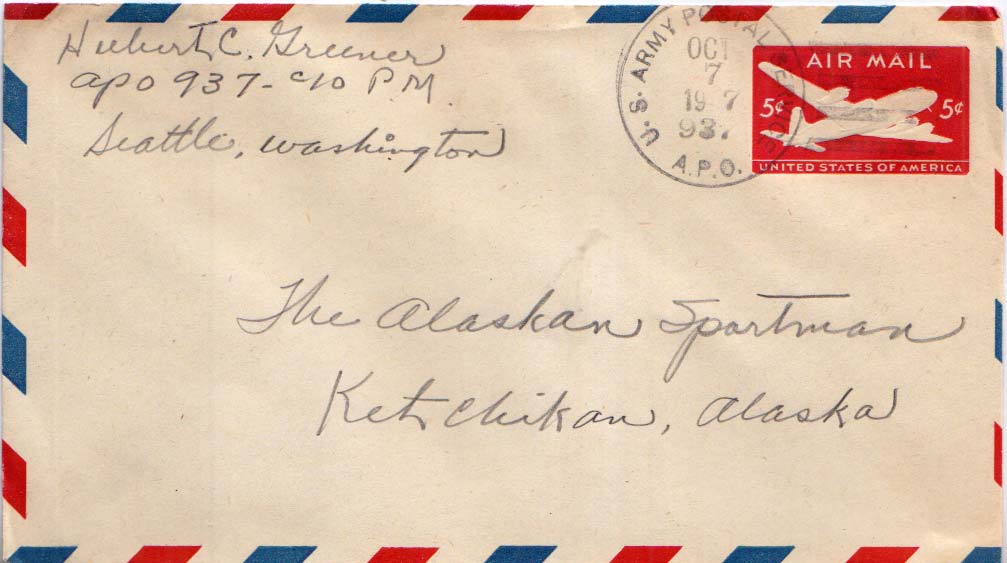 Hubert C. Greener
APO 937 - c/o P.M.
Seattle, Washington
U.S. ARMY POSTAL SERVICE
OCT
7
19 7
937
A.P.O.
AIR MAIL
5¢ 5¢
UNITED STATES OF AMERICA
The Alaskan Sportman
Ketchikan, Alaska